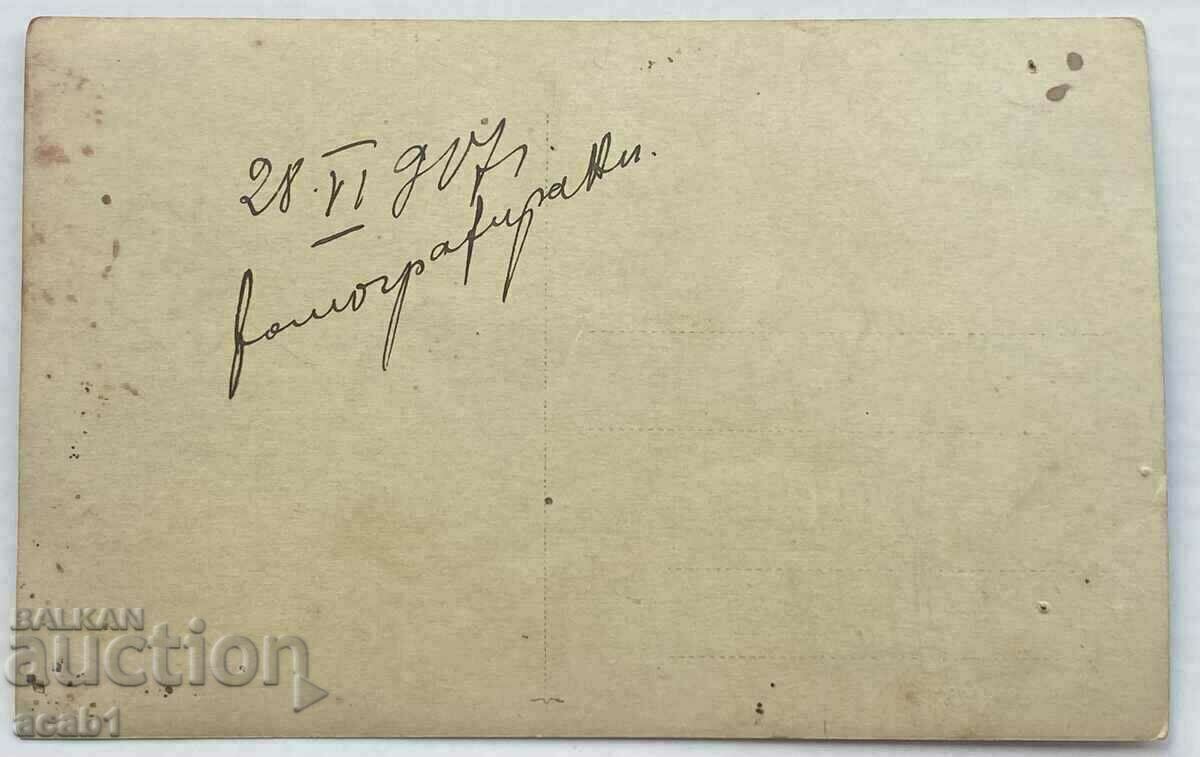 28.VI 917.
фотографирани.
BALKAN
auction
acab1